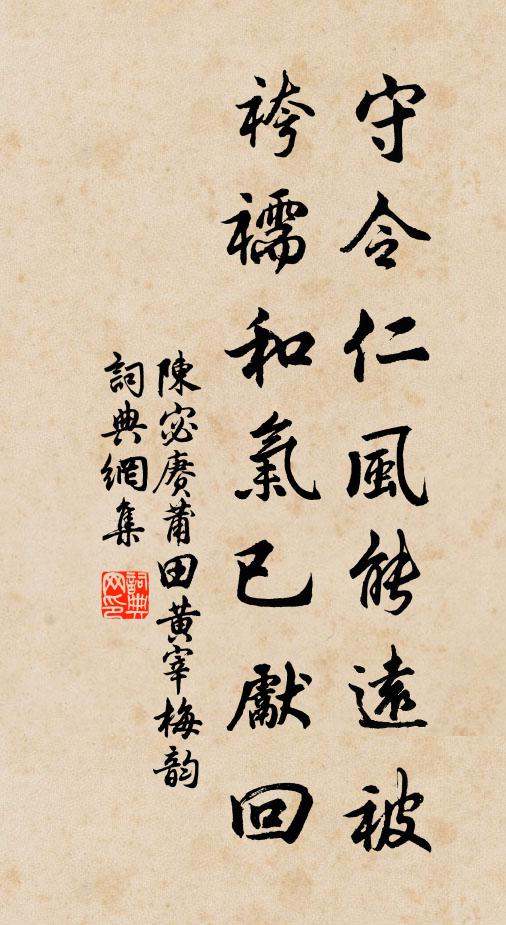 守令仁風能遠被
袴襦和氣已獻回
陳宓賡莆田黃宰梅韵
詞典網集
詞典网印